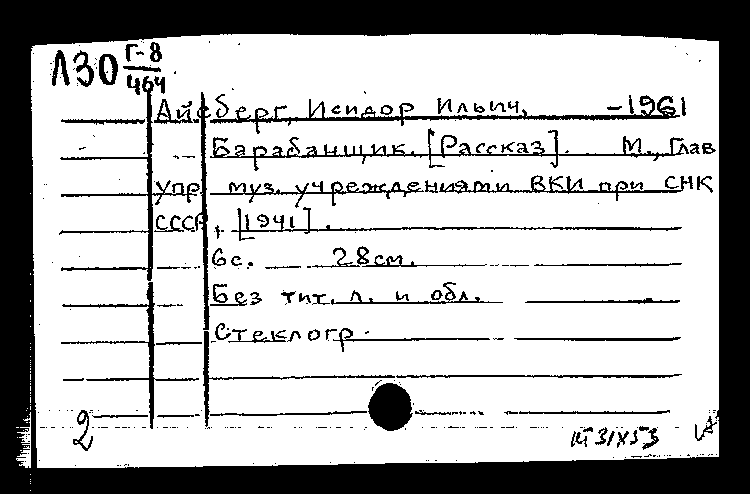 Л30 Г-8
464
Айсберг, Исидор Ильич, -1961
Барабанщик. [Рассказ]. М., Глав
упр. муз. учреждениями ВКИ при СНК
СССР, [1941].
6с. 28см.
Без тит. л. и обл.
Стеклогр.
2